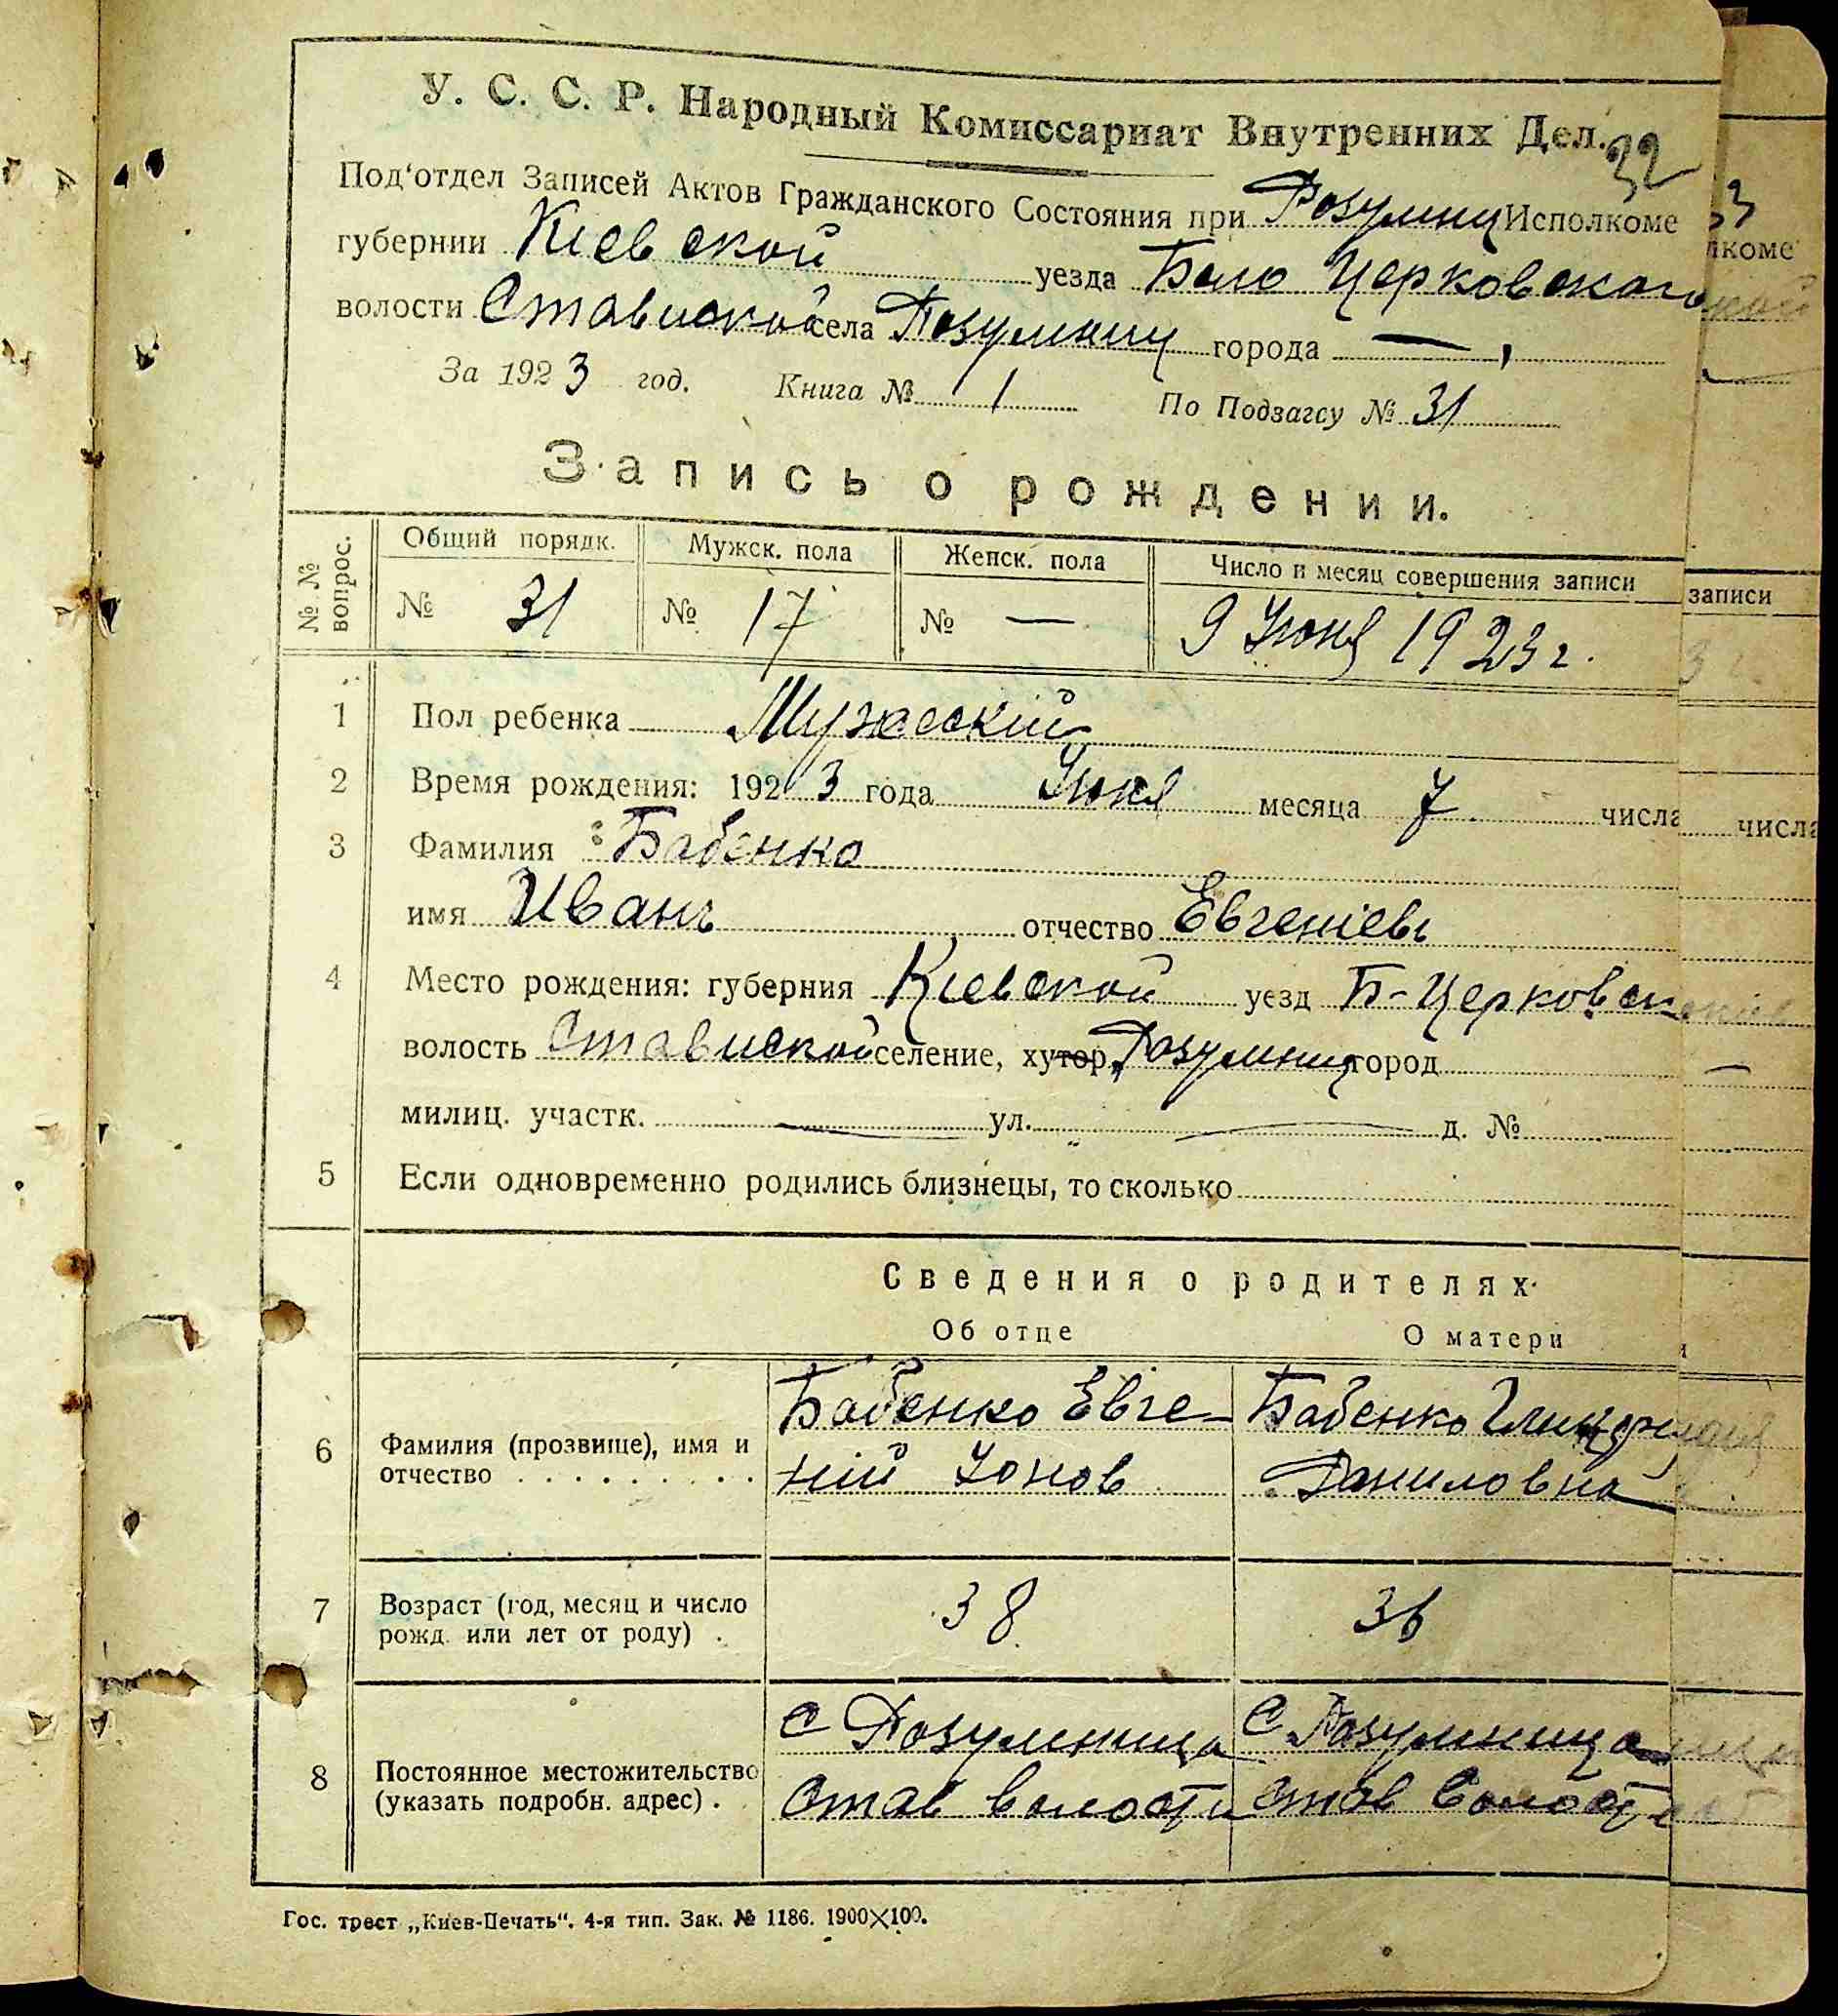 У. С. С. Р. Народный Комиссариат Внутренних Дел.
32
Под‘отдел Записей Актов Гражданского Состояния при Розумниц Исполкоме
губернии Кіевской уезда Бело Церковского
волости Ставиской села Розумниц города — ,
За 1923 год. Книга № 1 По Подзагсу № 31
Запись о рождении.
№ № вопрос.
Общий порядк. Мужск. пола Женск. пола Число и месяц совершения записи
№ 31 № 17 № — 9 Июня 1923 г.
1 Пол ребенка Мужеский
2 Время рождения: 1923 года Июня месяца 7 числа
3 Фамилия Бабенко
имя Иванъ отчество Евгеніевъ
4 Место рождения: губерния Кіевской уезд Б-Церковск
волость Ставиской селение, хутор, Розумниц город
милиц. участк. — ул. — д. №
5 Если одновременно родились близнецы, то сколько
Сведения о родителях
Об отце О матери
6 Фамилия (прозвище), имя и отчество
Бабенко Евге-
ній Ионов
Бабенко
Даниловна
7 Возраст (год, месяц и число рожд. или лет от роду) . 38 36
8 Постоянное местожительство (указать подробн. адрес) .
С Розумница
Став волости
С Розумница
Став волости
Гос. трест „Киев-Печать“. 4-я тип. Зак. № 1186. 1900×100.
33
лкоме
записи
числа